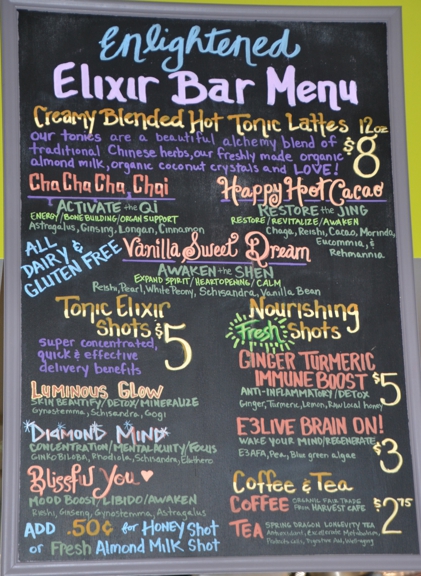 Enlightened
Elixir Bar Menu
Creamy Blended Hot Tonic Lattes 12oz
our tonics are a beautiful alchemy blend of
traditional Chinese herbs, our freshly made organic
almond milk, organic coconut crystals and LOVE!
$8
Cha Cha Cha, Chai
ACTIVATE the QI
ENERGY/BONEBUILDING/ORGAN SUPPORT
Astragalus, Ginsing, Longan, Cinnamon
Happy Hoot Cacao
RESTORE the JING
RESTORE/REVITALIZE/AWAKEN
Chaga, Reishi, Cacao, Morinda,
Eucommia, &
Rehmannia
ALL
DAIRY &
GLUTEN FREE
Vanilla Sweet Dream
AWAKEN the SHEN
EXPAND SPIRIT/HEARTOPENING/CALM
Reishi, Pearl, White Peony, Schisandra, Vanilla Bean
Tonic Elixir
Shots $5
super concentrated,
quick & effective
delivery benefits
LUMINOUS GLOW
SKIN BEAUTIFY/DETOX/MINERALIZE
Gynostemma, Schisandra, Gogi
DIAMOND MIND
CONCENTRATION/MENTAL ACUITY/FOCUS
Ginko Biloba, Rhodiola, Schisandra, Eluthero
Blissful You
MOOD BOOST/LIBIDO/AWAKEN
Reishi, Ginseng, Gynostemma, Astragalus
ADD .50¢ for HONEY Shot
or Fresh Almond Milk Shot
Nourishing
Fresh Shots
GINGER TURMERIC
IMMUNE BOOST $5
ANTI-INFLAMMATORY/DETOX
Ginger, Turmeric, Lemon, Raw local honey
E3LIVE BRAIN ON!
WAKE YOUR MIND/REGENERATE
E3AFA, Pea, Blue green algae
$3
Coffee & Tea
COFFEE ORGANIC FAIR TRADE
FROM HARVEST CAFE
$2.75
TEA SPRING DRAGON LONGEVITY TEA
Antioxidant, Accelerate Metabolism,